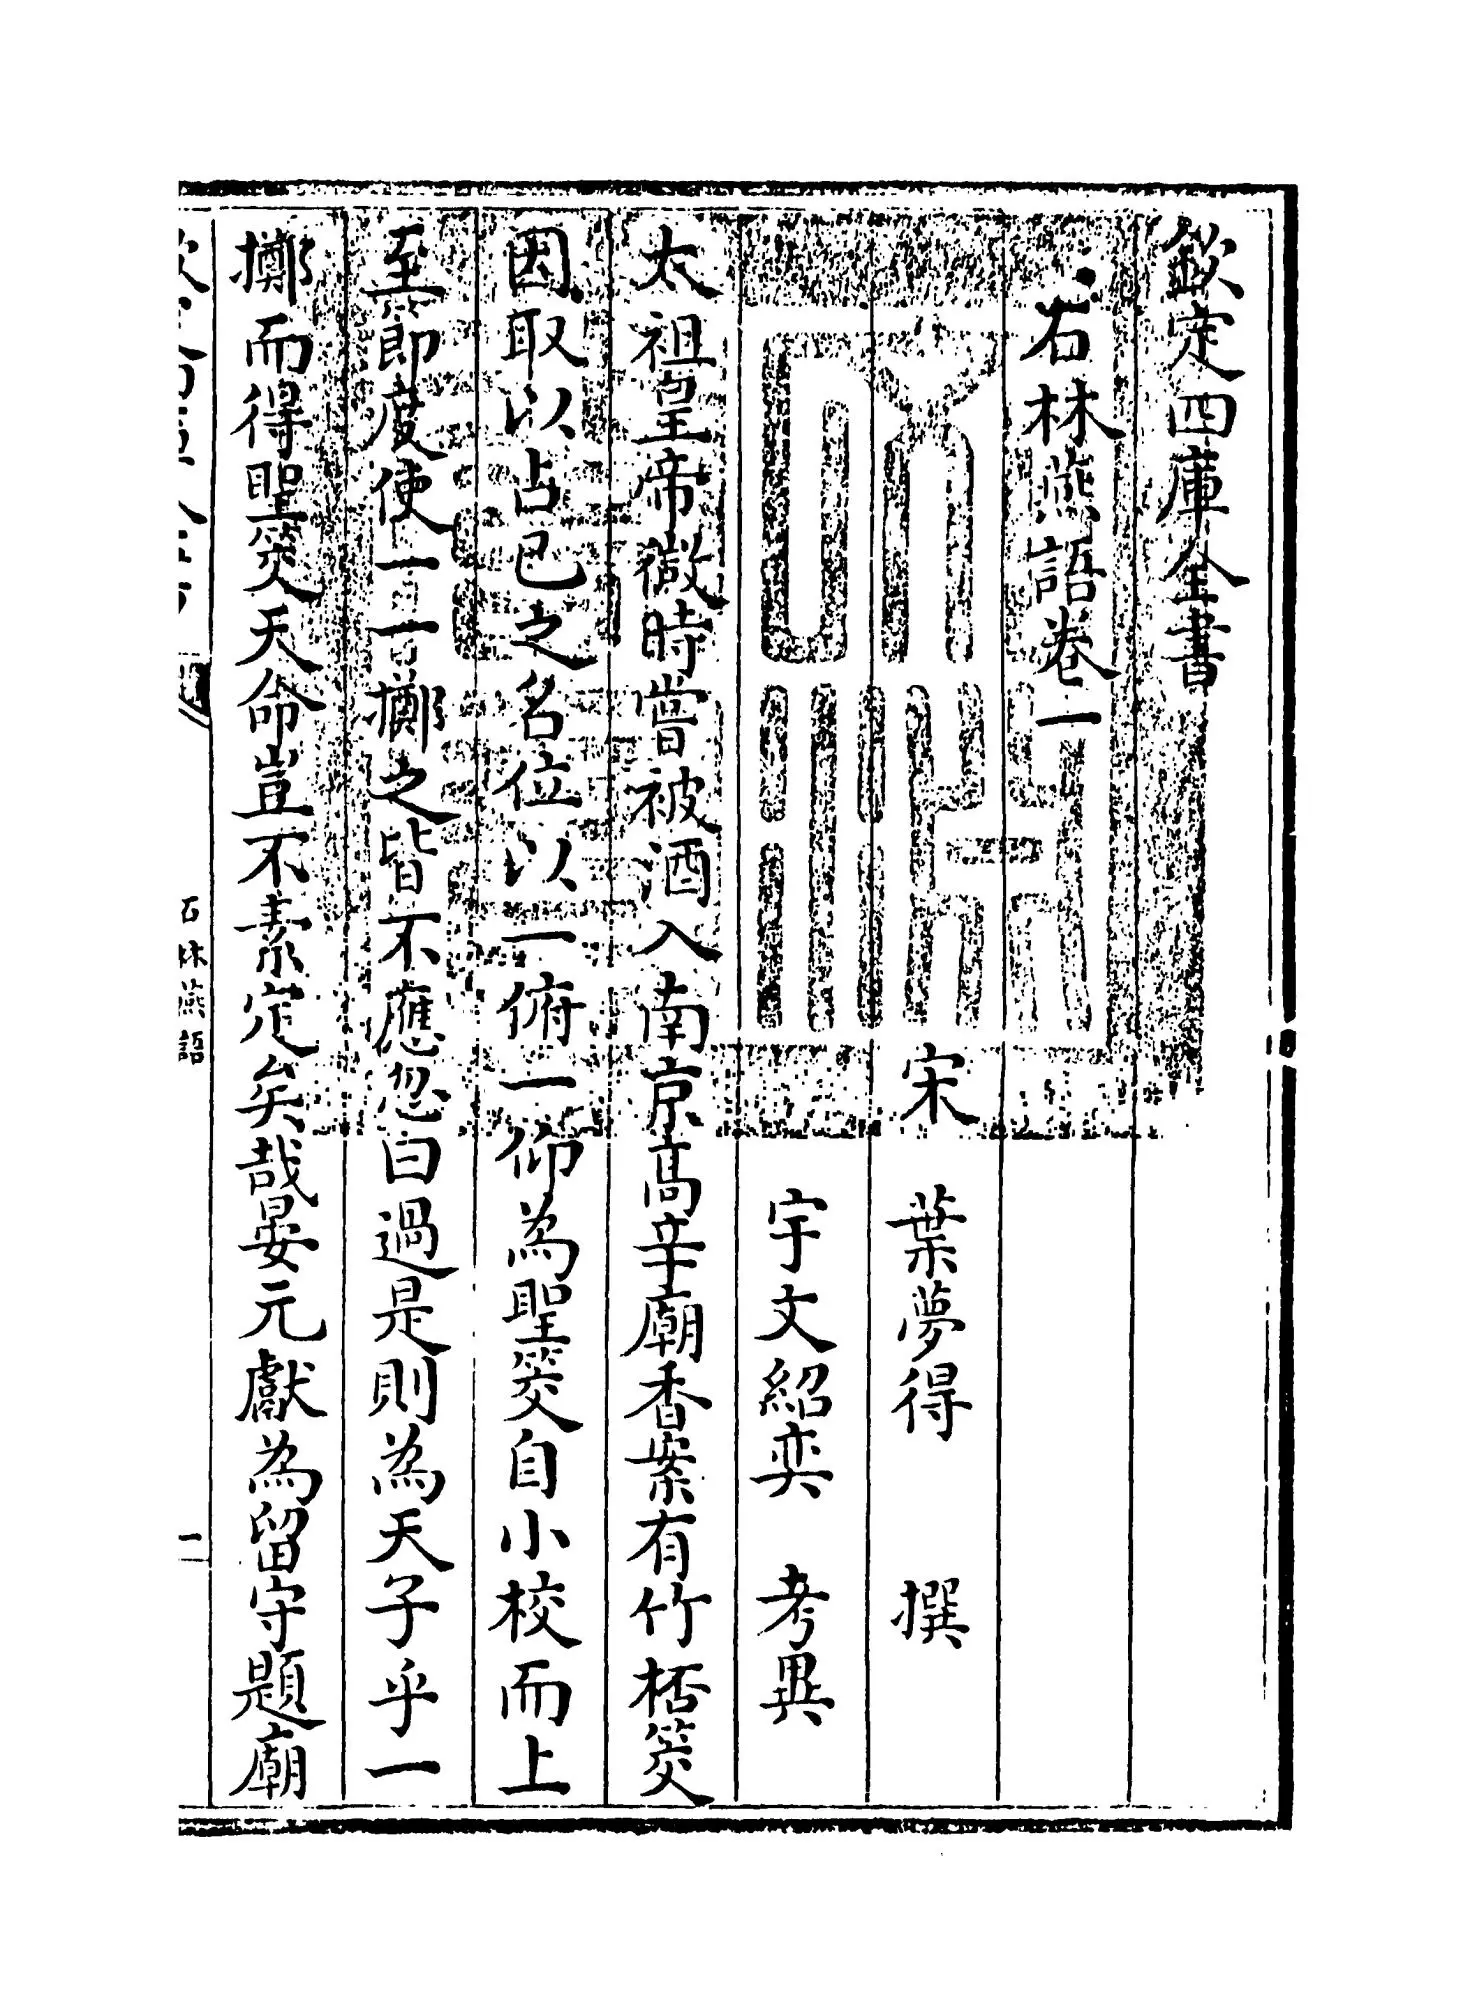 欽定四庫全書
石林燕語卷一
宋 葉夢得 撰
宇文紹奕 考異
太祖皇帝微時嘗被酒入南京高辛廟香案有竹桮筊
因取以占已之名位以一俯一仰為聖筊自小校而上
至節度使一一擲之皆不應忽曰過是則為天子乎一
擲而得聖筊天命豈不素定矣哉晏元獻為留守題廟
石林燕語
一